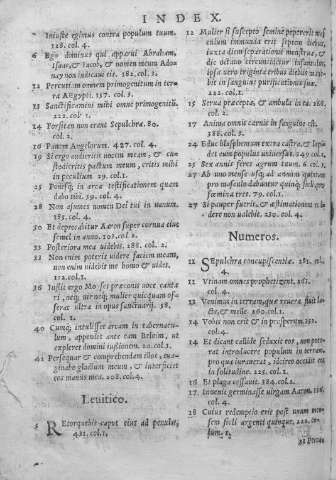 INDEX.
Iniuste egimus contra populum tuum.
128. col. 4.
6 Ego dominus qui apparui Abraham,
Isaac, & Iacob, & nomen meum Ado
nay non indicaui eis. 182. col. 3.
12 Percutiam omnem primogenitum in ter
ra Aegypti. 157. col. 3.
13 Sanctificamini mihi omne primogenitũ.
222. col. 1.
14 Forsitan non erant Sepulchra. 80.
col. 2.
16 Panem Angelorum. 427. col. 4.
19 Si ergo audieritis vocem meam, & cu-
stodieritis pactum meum, eritis mihi
in peculium. 29. col. 1.
25 Ponesq; in arca testificationem quam
dabo tibi. 59. col. 4.
28 Non assumes nomen Dei tui in vanum.
185. col. 4.
30 Et deprecabitur Aaron super cornua eius
semel in anno. 102. col. 2.
33 Posteriora mea videbis. 288. col. 2.
33 Non enim poteris videre faciem meam,
non enim videbit me homo & viuet.
112. col. 1.
36 Iussit ergo Moses præconis voce canta
ri, neq; vir neq; mulier quicquam of-
ferat ultra in opus sanctuarij. 58.
col. 1.
40 Cumq; intulisset arcam in tabernacu-
lum, appendit ante eam velum, ut
expleret domini iussionem. 20. col. 1.
41 Persequar & comprehendam illos, eua-
ginabo gladium meum, & interficiet
eos manus mea. 208. col. 4.
Leuitico.
5 REtorquebis caput eius ad pennulas,
431. col. 1.
12 Mulier si suscepto semine pepererit mas
culum immunda erit septem diebus,
iuxta dies separationis menstruæ, &
die octauo circumcidetur infantulus,
ipsa vero triginta tribus diebus manebit
in sanguine purificationis suæ.
222. col. 2.
15 Serua præcepta, & ambula in eis. 168.
col. 2.
17 Anima omnis carnis in sanguine est.
388. col. 3.
24 Educ blasphemum extra castra, & lapi-
det eum populus uniuersus. 249. col. 1.
25 Sex annis seres agrum tuum. 6. col. 1.
27 Ab uno mense usq; ad annum quintum
pro masculo dabuntur quinq; sicli, pro
fœmina tres. 79. col. 1.
27 Si pauper fuerit, & æstimationem red-
dere non valebit. 230. col. 4.
Numeros.
11 SEpulchra concupiscentiæ. 281. col.
4.
11 Vtinam omnes prophetizent. 161.
col. 4.
13 Venimus in terram, quæ reuera fluit la-
cte, & melle. 160. col. 1.
14 Vobis non erit & in prosperum. 251.
col. 4.
14 Et dicant callide seduxit eos, non pote-
rat introducere populum in terram,
pro qua iurauerat, idcirco occidit eos
in solitudine. 225. col. 1.
16 Et plaga cessauit. 184. col. 2.
17 Inuenit germinasse virgam Aaron. 126.
col. 4.
18 Cuius redemptio erit post unum men-
sem sicli argenti quinque. 222. co-
lum. 2.